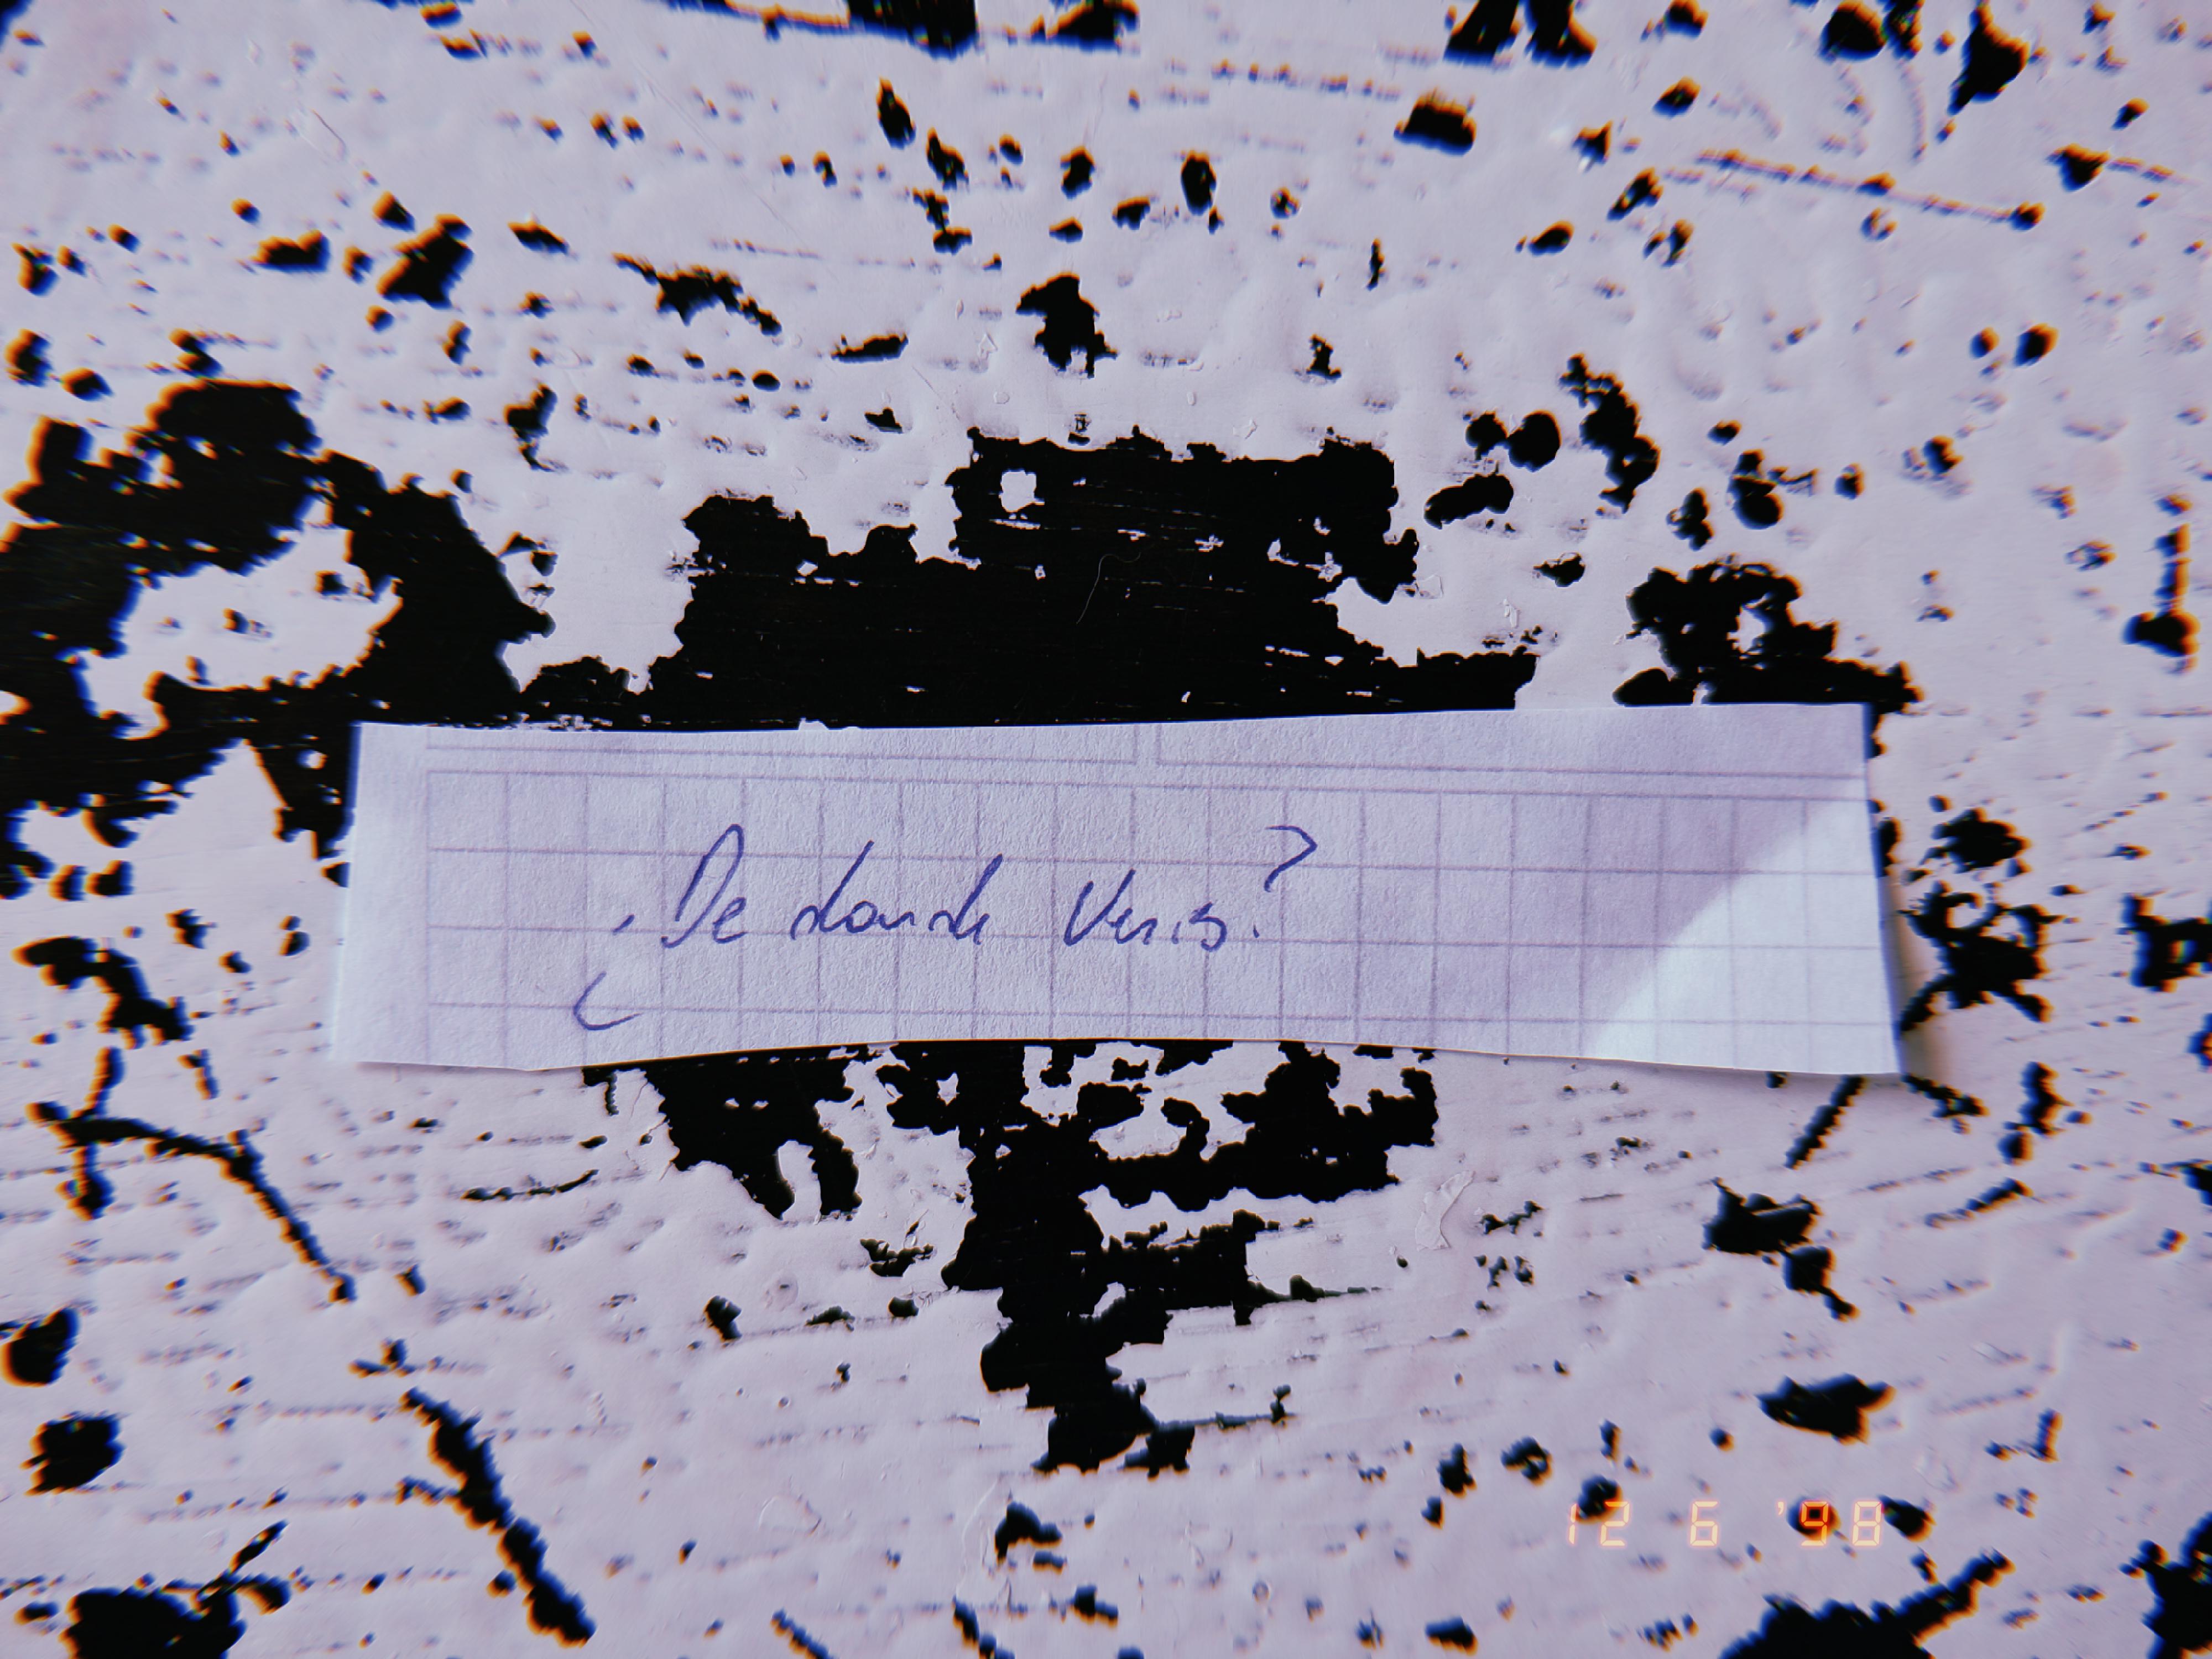 ¿De donde Venis?
12 6 '98